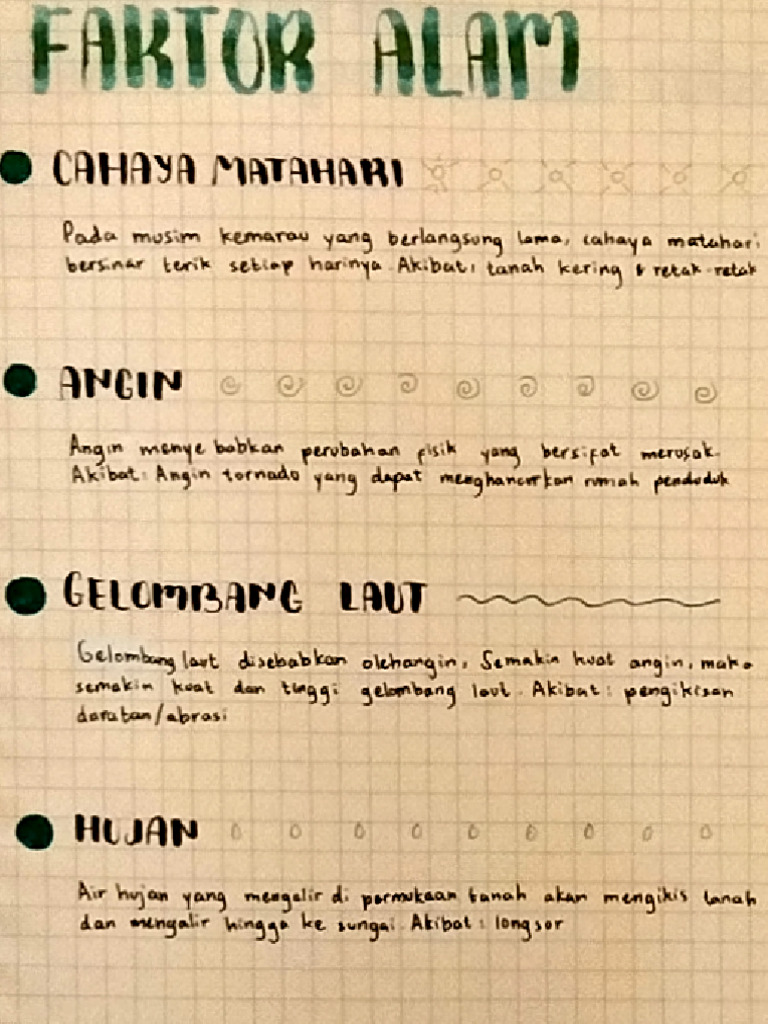 FAKTOR ALAM
CAHAYA MATAHARI
Pada musim kemarau yang berlangsung lama, cahaya matahari
bersinar terik setiap harinya. Akibat: tanah kering & retak-retak
ANGIN
Angin menyebabkan perubahan fisik yang bersifat merusak.
Akibat: Angin tornado yang dapat menghancurkan rumah penduduk
GELOMBANG LAUT
Gelombang laut disebabkan oleh angin, Semakin kuat angin, maka
semakin kuat dan tinggi gelombang laut. Akibat: pengikisan
daratan/abrasi
HUJAN
Air hujan yang mengalir di permukaan tanah akan mengikis tanah
dan mengalir hingga ke sungai. Akibat: longsor